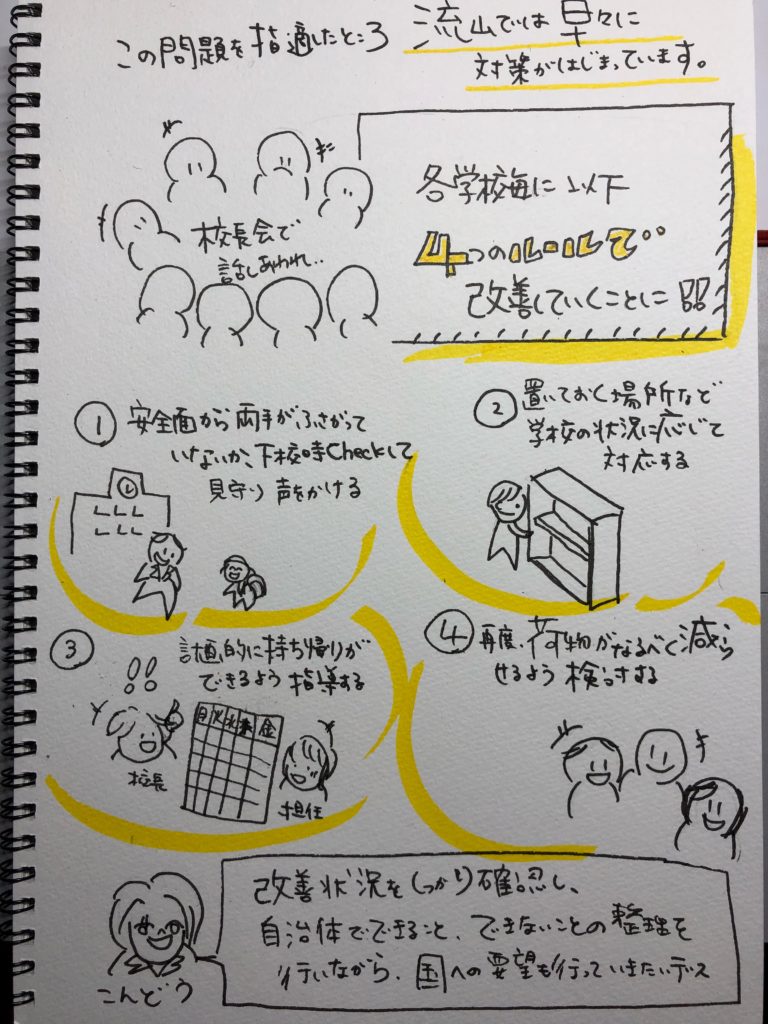 この問題を指摘したところ 流山では早々に
対策がはじまっています。
校長会で
話しあわれ..
各学校毎に以下
4つのルールで..
改善していくことに!!
① 安全面から両手がふさがって
いないか、下校時Checkして
見守り声をかける
② 置いておく場所など
学校の状況に応じて
対応する
③ 計画的に持ち帰りが
できるよう指導する
!!
月火水木金
校長
担任
④ 再度、荷物がなるべく減ら
せるよう検討する
改善状況をしっかり確認し、
自治体でできること、できないことの整理を
行いながら、国への要望も行っていきたいデス
こんどう